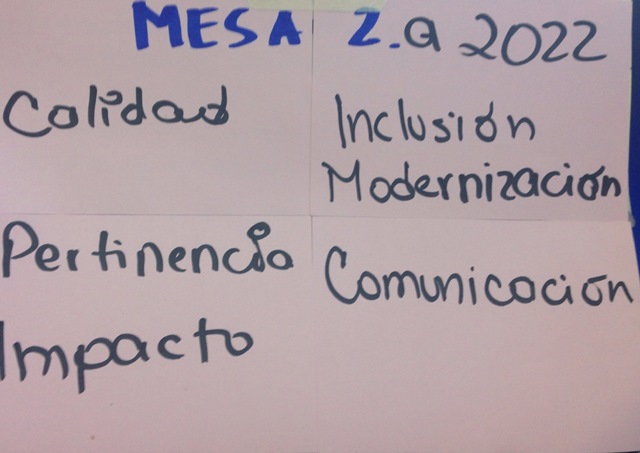 MESA 2.a 2022
Calidad
Inclusión
Modernización
Pertinencia
Comunicación
Impacto